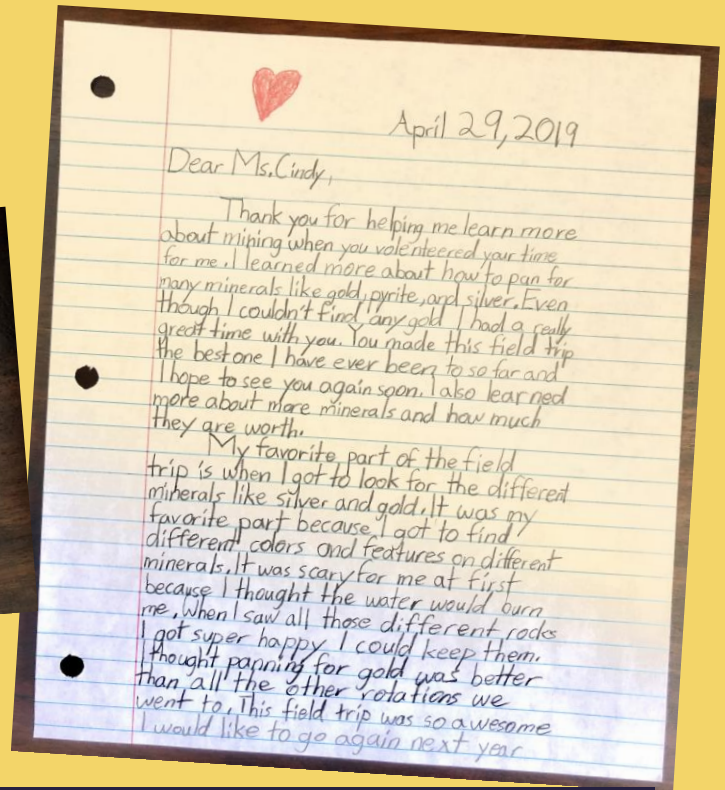 April 29, 2019
Dear Ms. Cindy,
Thank you for helping me learn more
about mining when you volenteered your time
for me. I learned more about how to pan for
many minerals like gold, pyrite, and silver. Even
though I couldn't find any gold I had a really
great time with you. You made this field trip
the best one I have ever been to so far and
I hope to see you again soon. I also learned
more about more minerals and how much
they are worth.
My favorite part of the field
trip is when I got to look for the different
minerals like silver and gold. It was my
favorite part because I got to find
different colors and features on different
minerals. It was scary for me at first
because I thought the water would burn
me. When I saw all those different rocks
I got super happy I could keep them.
I thought panning for gold was better
than all the other rotations we
went to. This field trip was so awesome
I would like to go again next year